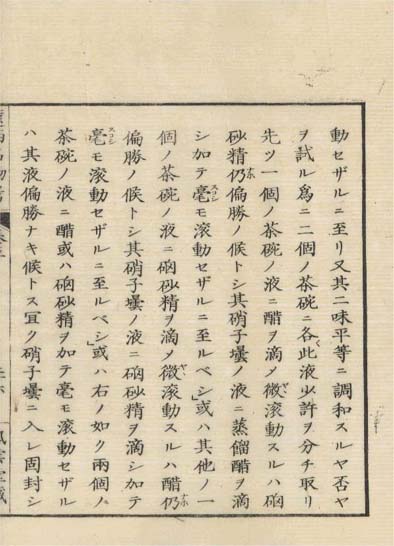 動セザルニ至リ又其二味平等ニ調和スルヤ否ヤ
ヲ試ル爲ニ二個ノ茶碗ニ各〻此液少許ヲ分チ取リ
先ツ一個ノ茶碗ノ液ニ醋ヲ滴メ微滚動スルハ硇
砂精仍偏勝ノ候トシ其硝子壜ノ液ニ蒸餾醋ヲ滴
シ加テ毫モ滚動セザルニ至ルベシ」或ハ其他ノ一
個ノ茶碗ノ液ニ硇砂精ヲ滴メ微滚動スルハ醋仍
偏勝ノ候トシ其硝子壜ノ液ニ硇砂精ヲ滴シ加テ
毫モ滚動セザルニ至ルベシ」或ハ右ノ如ク兩個ノ
茶碗ノ液ニ醋或ハ硇砂精ヲ加テ毫モ滚動セザル
ハ其液偏勝ナキ候トス宜ク硝子壜ニ入レ固封シ